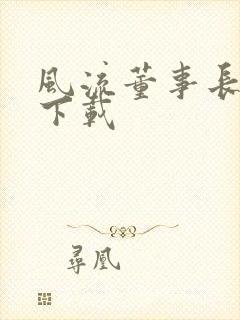 風流董事長
下載
尋凰